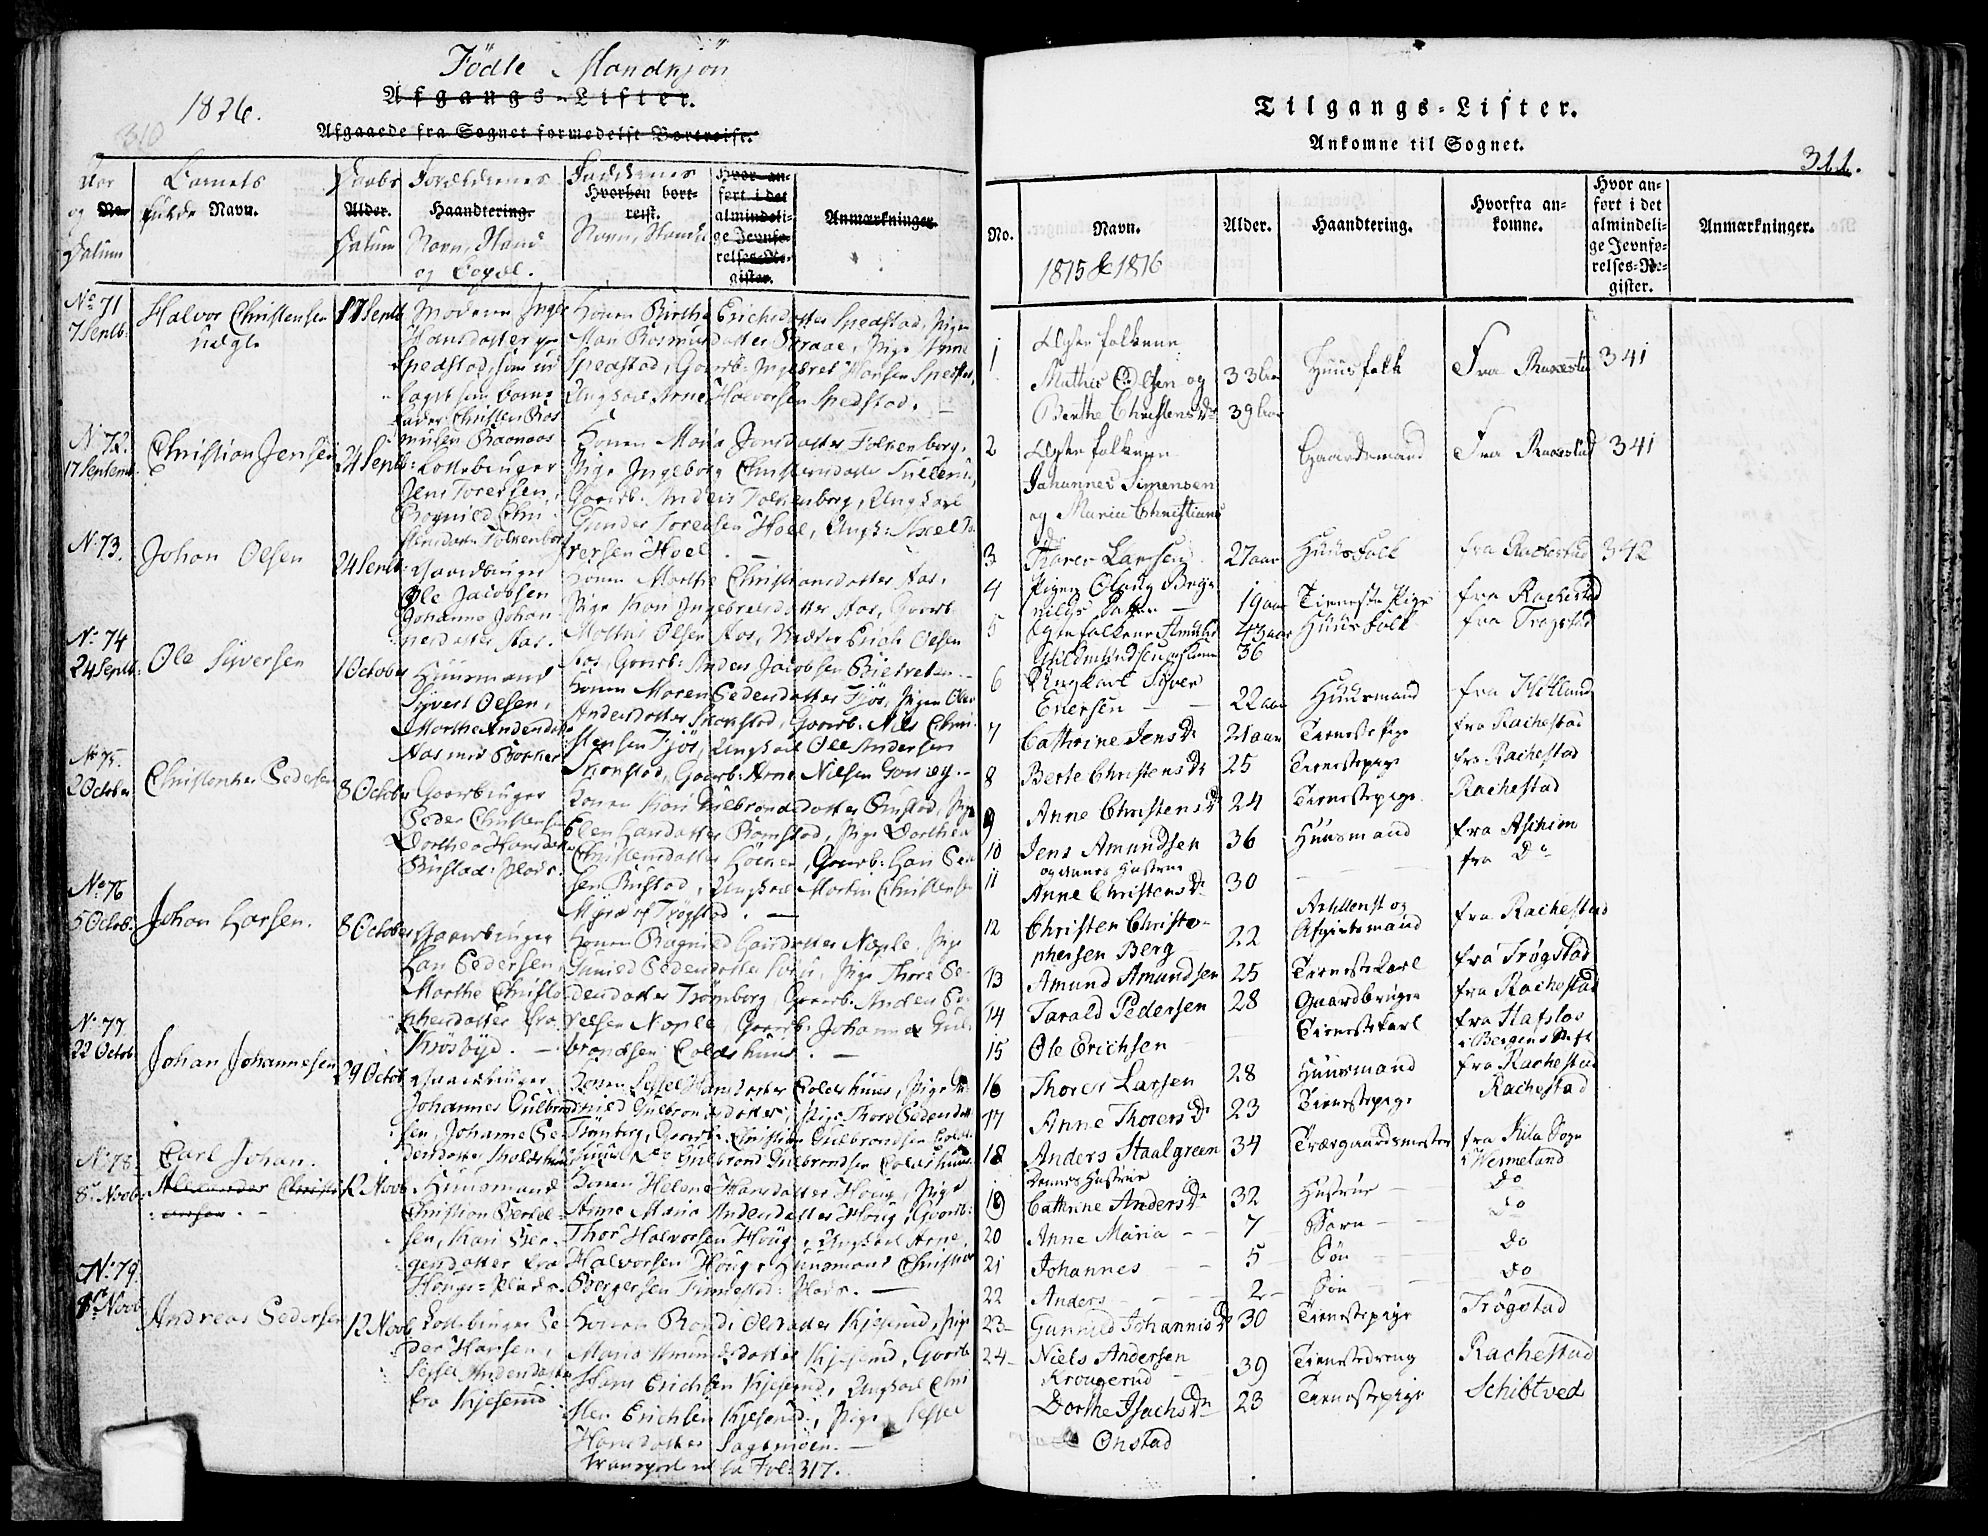 Födte Mandkjön
1826.
310
Afgangs-Lister.
Afgaaede fra Sognet formedelst Bortreise.
Aar og Datum
No.
Barnets fulde Navn.
Daabs Datum
Alder.
Forældrenes
Haandtering.
Navn, Stand
og Bopæl.
Faddernes
Hvorhen bortreist.
Navn, Stand
Hvor anført i det almindelige Jevnførelses-Register.
Anmærkninger.
No 71
7 Septb.
Halvor Christensen
uægte
17 Septb
Moderen Inge
Hansdatter
Spedstad, som ud
lagt som barne
fader Christen Ras
musen Raanaas
Konen Birthe Erichsdatter Spedstad, Pigen
Mari Rasmusdatter Braae, Pige
Spedstad, Gaarb: Ingebret Hansen Spedst,
Ungkarl Arne Halvorsen Spedstad.
No 72.
17 Septemb
Christian Jensen
24 Septb
Lottebruger
Jens Torersen,
Ragnild Chri
stensdatter Folkenborg
Konen Maria Jonsdatter Folkenborg,
Pige Ingeborg Christensdatter
Gaarb: Anders Folkenborg, Ungkarl
Gunder Torersen Hoel, Ungk: To
rersen Hoel.
No 73.
Johan Olsen
24 Septb
Gaardbruger
Ole Jacobsen
Johanne Johan
nesdatter Aas.
Konen Marthe Christiansdatter Aas,
Pige Kari Ingebretsdatter Aas, Gaarb.
Mathis Olsen Aas, Erich Olsen
Aas, Gaarb: Anders Jacobsen
No 74
24 Septb.
Ole Syversen
1 October
Huusmand
Syvert Olsen,
Marthe Andersdatter
Konen Maren Pedersdatter Tjös, Pigen
Andersdatter Skonstad, Gaarb. Nils Chri
stensen Tjös, Ungkarl Ole Andersen
Skonstad, Gaarb: Arne Nilsen
No 75.
2 October
Christopher Pedersen
8 October
Gaardbruger
Peder Christens
Dorthea Hansdatter
Bustad: plads.
Konen Kari Gulbrandsdatter Bustad, Pige
Elen Larsdatter Ramstad, Pige Dorthea
Christensdatter, Gaarb: Lars
sen Bustad, Ungkarl Martin Christense
Myra af Trögstad.
No 76
5 Octob.
Johan Larsen.
8 October
Gaardbruger
Lars Pedersen,
Marthe Christo
phersdatter fra
Krosbyd.
Konen Ragnild Larsdatter Nople, Pige
Gunild Pedersdatter, Pige Thore Pe
dersdatter Trömborg, Gaarb. Anders Pe
dersen Nople, Gaarb. Johannes Gul
brandsen Coldshuus.
No 77
22 Octob
Johan Johannesen
29 Octob
Gaardbruger
Johannes Gulbrand
sen, Johanne Pe
dersdatter
Konen Sissel Hansdatter Coldshuus, Pige
nild Gulbrandsdatter, Pige Thore Pedersdatt
Trömborg, Gaarb. Christian Gulbrandsen Cold
shuus, Gulbrand Gulbrandsen Coldshuus.
No 78.
8de Novb.
Carl Johan.
Alexander Christi
ansen.
12 Novb
Huusmand
Christian Pedel
sen, Kari Ber
gersdatter fra
Houge-plads.
Konen Helene Hansdatter Houg, Pige
Anne Maria Andersdatter Houg, Gaarb:
Thor Halvorsen Houg, Ungkarl Arne
Halvorsen Houg, Huusmand Christian
Bergersen Finnestad: Plads.
No 79
8de Novb
Andreas Pedersen
12 Novb
Lottebruger Pe
der Hansen,
Sissel Andersdatter
fra Kjeserud
Konen Randi Olsdatter Kjeserud, Pige
Maria Amundsdatter Kjeserud, Gaarb
Hans Erichsen Kjeserud, Ungkarl Chri
sten Erichsen Kjeserud, Pige Sissel
Hansdatter Sagemoen.
Transport til Fol: 317.
Tilgangs-Lister.
Ankomne til Sognet.
311.
No.
Navn.
Alder.
Haandtering.
Hvorfra ankomne.
Hvor anført i det almindelige Jevnførelses-Register.
Anmærkninger.
1815 & 1816
1 Egtefolkene
Mathis Olsen og 33 aar Huusfolk Fra Rakestad 341
Berthe Christensdr 39 aar
2 Egtefolkene Gaardemand Fra Rakestad 341
Johannes Simensen
og Maria Christians
dr
3 Torer Larsen 27 aar Huusfolk fra Rachestad 342
4 Pigen Olaug Bryn
nilds Datter 19 aar Tieneste Pige fra Rachestad
5 Egtefolkene Amund 43 aar Huusfolk fra Trøgstad
36
6 Ungkarl Syver
Enersen 22 aar Huusmand fra Hitland
7 Cathrine Jensdr 21 aar Tieneste Pige fra Rachestad
8 Berte Christensdr 25 Tienestepige fra Rachestad
9 Anne Christensdr 24 Tienestepige Rachestad
10 Jens Amundsen 36 Huusmand fra Aschim
og dennes Hustrue
11 Anne Christensdr 30 fra Do
12 Christen Christo-
phersen Berg 22 Artillerist og Afgivtsmand fra Rachestad
13 Amund Amundsen 25 Tienestekarl fra Trøgstad
14 Tarald Pedersen 28 Gaardbruger fra Rachestad
15 Ole Erichsen Tienestekarl fra Hafslo
i Bergens Stift
16 Thorer Larsen 28 Huusmand fra Rachestad
17 Anne Thorersdr 23 Tienestepige Rachestad
18 Anders Staalgreen 34 Trærgaardsmester fra Kila Sogn
i Wermeland
Dennes Hustrue
19 Cathrine Andersdr 32 Hustrue Do
20 Anne Maria 7 Barn Do
21 Johannes 5 Søn Do
22 Anders 2 Søn Do
23 Gunnild Johannisdr 30 Tienestepige Trøgstad
24 Niels Andersen
Krougerud 39 Tienestedreng Rachestad
Dorthe Isachsdr 23 Tienestepige Schibtved
Onstad